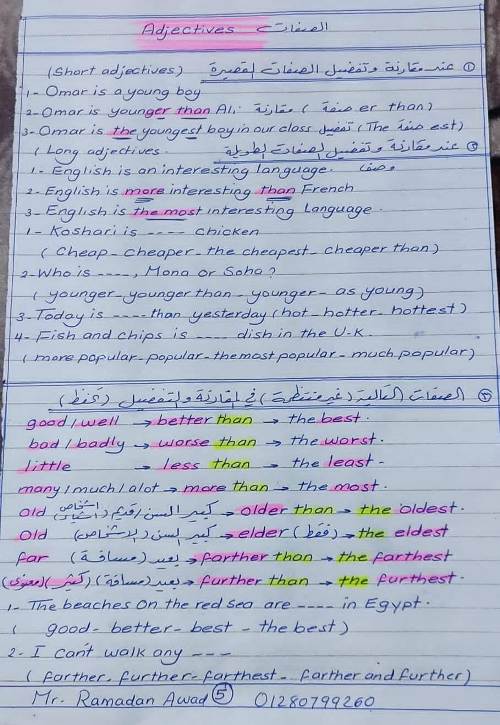 Adjectives الصفات
(Short adjectives) عند مقارنة وتفضيل الصفات القصيرة ①
1- Omar is a young boy
2- Omar is younger than Ali مقارنة ( صفة er than)
3- Omar is the youngest boy in our class تفضيل (The صفة est)
(Long adjectives. عند مقارنة وتفضيل الصفات الطويلة ②
1- English is an interesting language. وصف
2- English is more interesting than French
3- English is the most interesting Language.
1- Koshari is ---- chicken
(Cheap - cheaper - the cheapest - cheaper than)
2- Who is ----, Mona or Soha?
(younger - younger than - younger - as young)
3- Today is ---- than yesterday (hot - hotter - hottest)
4- Fish and chips is ---- dish in the U.K.
(more popular - popular - the most popular - much popular)
③ الصفات التالية (غير منتظمة) في المقارنة والتفضيل (تحفظ)
good / well → better than → the best.
bad / badly → worse than → the worst.
little → less than → the least -
many / much / a lot → more than → the most.
old كبير السن / قديم (أشخاص / أشياء) → older than → the oldest.
old كبير السن (للأشخاص) (فقط) → elder → the eldest
far بعيد (مسافة) → farther than → the farthest
(معنوى) (كثير) بعيد (مسافة) → further than → the furthest.
1- The beaches on the red sea are ---- in Egypt.
( good - better - best - the best)
2- I can't walk any ---
(farther. further - farthest - farther and further)
Mr. Ramadan Awad ⑤ 01280799260